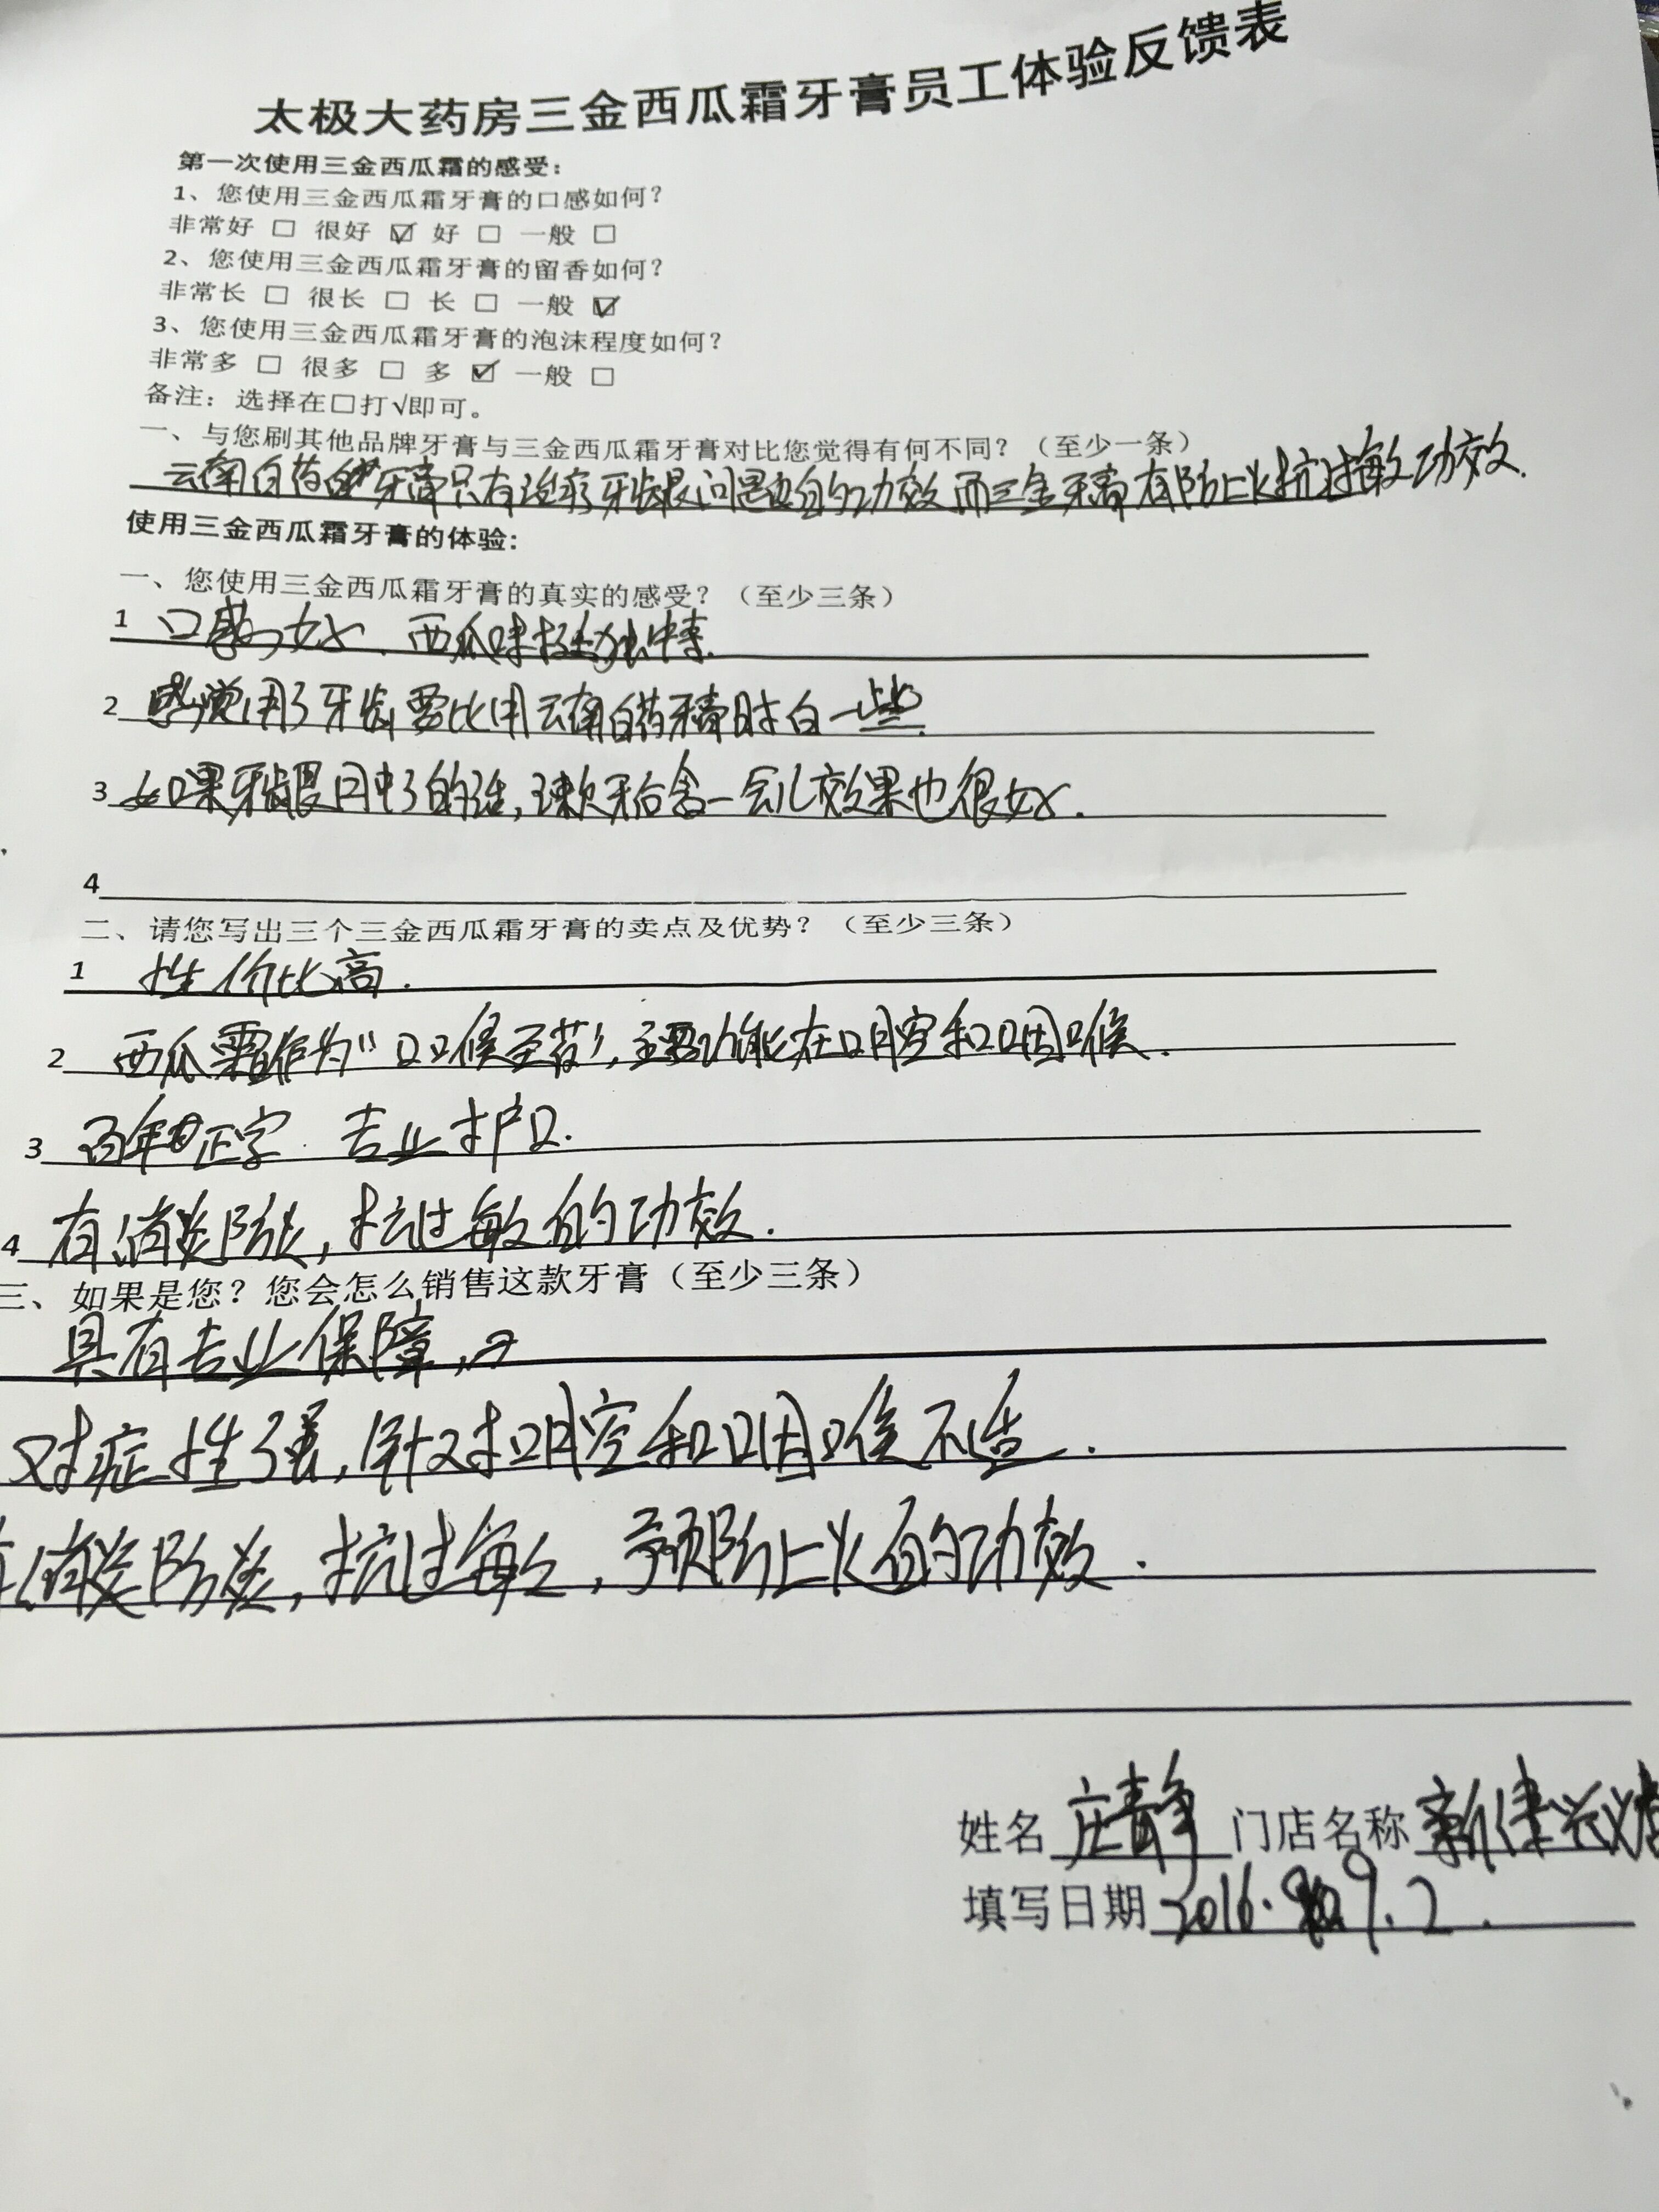 太极大药房三金西瓜霜牙膏员工体验反馈表
第一次使用三金西瓜霜的感受：
1、您使用三金西瓜霜牙膏的口感如何？
非常好 □ 很好 ☑ 好 □ 一般 □
2、您使用三金西瓜霜牙膏的留香如何？
非常长 □ 很长 □ 长 □ 一般 ☑
3、您使用三金西瓜霜牙膏的泡沫程度如何？
非常多 □ 很多 □ 多 ☑ 一般 □
备注：选择在□打√即可。
一、与您刷其他品牌牙膏与三金西瓜霜牙膏对比您觉得有何不同？（至少一条）
云南白药的牙膏只有治疗牙龈问题的功效而三金牙膏有防上火抗过敏功效.
使用三金西瓜霜牙膏的体验:
一、您使用三金西瓜霜牙膏的真实的感受？（至少三条）
1 口感好、西瓜味挺独特.
2 感觉用了牙齿要比用云南白药牙膏时白一些.
3 如果牙龈肿了的话,球牙含一会儿效果也很好.
4
二、请您写出三个三金西瓜霜牙膏的卖点及优势？（至少三条）
1 性价比高.
2 西瓜霜作为"口喉圣药",主要功能在口腔和咽喉.
3 百年正字.专业护口.
4 有消炎防炎,抗过敏的功效.
三、如果是您？您会怎么销售这款牙膏（至少三条）
具有专业保障,
对症性强,针对口腔和咽喉不适.
消炎防炎,抗过敏,预防上火的功效.
姓名 庄静 门店名称 新津兴义
填写日期 2016.9.2.